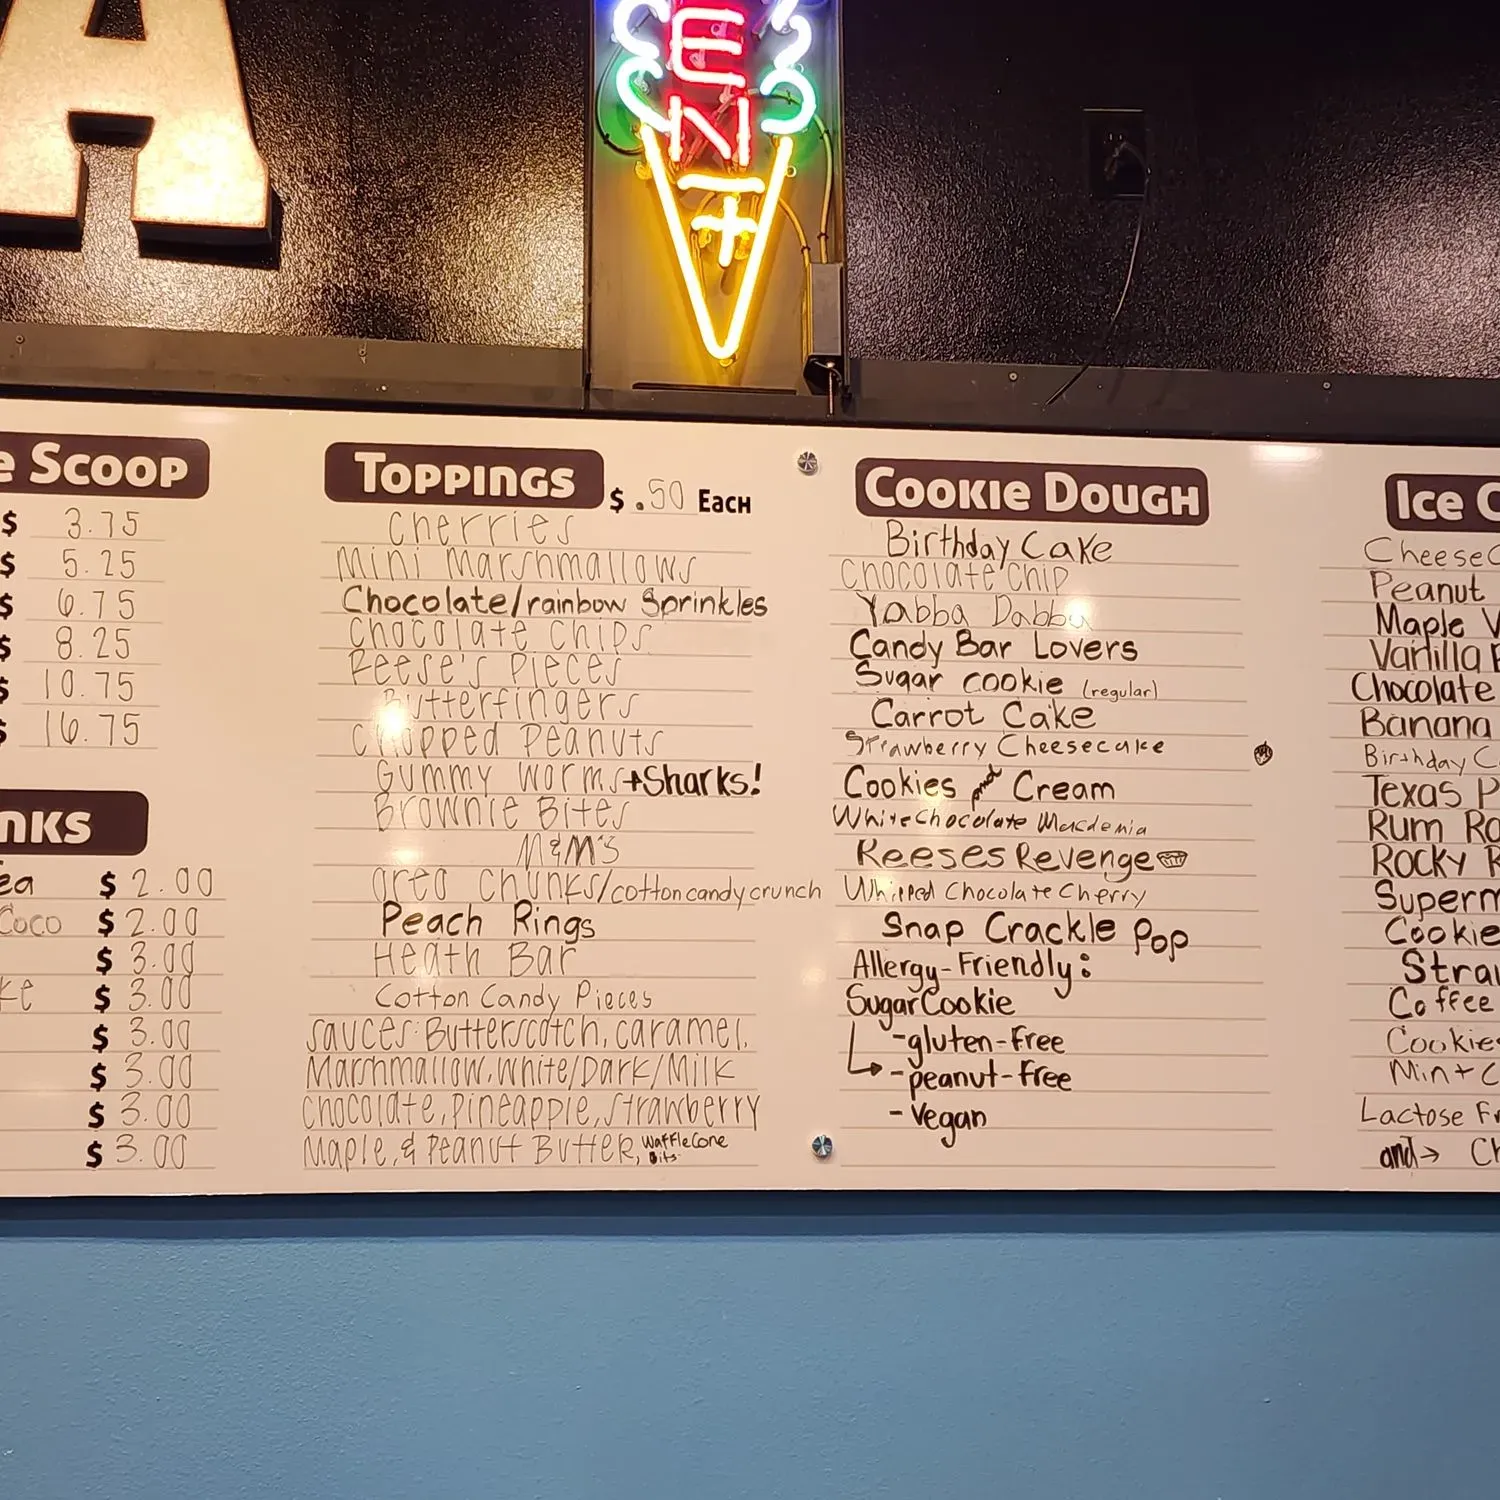 A
ENT
e Scoop
$ 3.75
$ 5.25
$ 6.75
$ 8.25
$ 10.75
$ 16.75
nks
ea $ 2.00
Coco $ 2.00
$ 3.00
ke $ 3.00
$ 3.00
$ 3.00
$ 3.00
$ 3.00
Toppings
$ .50 Each
Cherries
Mini Marshmallows
Chocolate/rainbow Sprinkles
Chocolate Chips
Reese's Pieces
Butterfingers
Chopped Peanuts
Gummy Worms + Sharks!
Brownie Bites
M&M's
Oreo Chunks/cotton candy crunch
Peach Rings
Heath Bar
Cotton Candy Pieces
Sauces: Butterscotch, caramel,
Marshmallow, White/Dark/Milk
Chocolate, Pineapple, Strawberry
Maple, & Peanut Butter, Waffle Cone
Bits
Cookie Dough
Birthday Cake
Chocolate Chip
Yabba Dabba
Candy Bar Lovers
Sugar cookie (regular)
Carrot Cake
Strawberry Cheesecake
Cookies and Cream
White Chocolate Macdemia
Reeses Revenge
Whipped Chocolate Cherry
Snap Crackle Pop
Allergy-Friendly:
Sugar Cookie
-gluten-free
-peanut-free
-Vegan
Ice C
CheeseC
Peanut
Maple V
Vanilla
Chocolate
Banana
Birthday C
Texas P
Rum Ra
Rocky R
Superm
Cookie
Straw
Coffee
Cookies
Mint C
Lactose Fr
and→ Ch